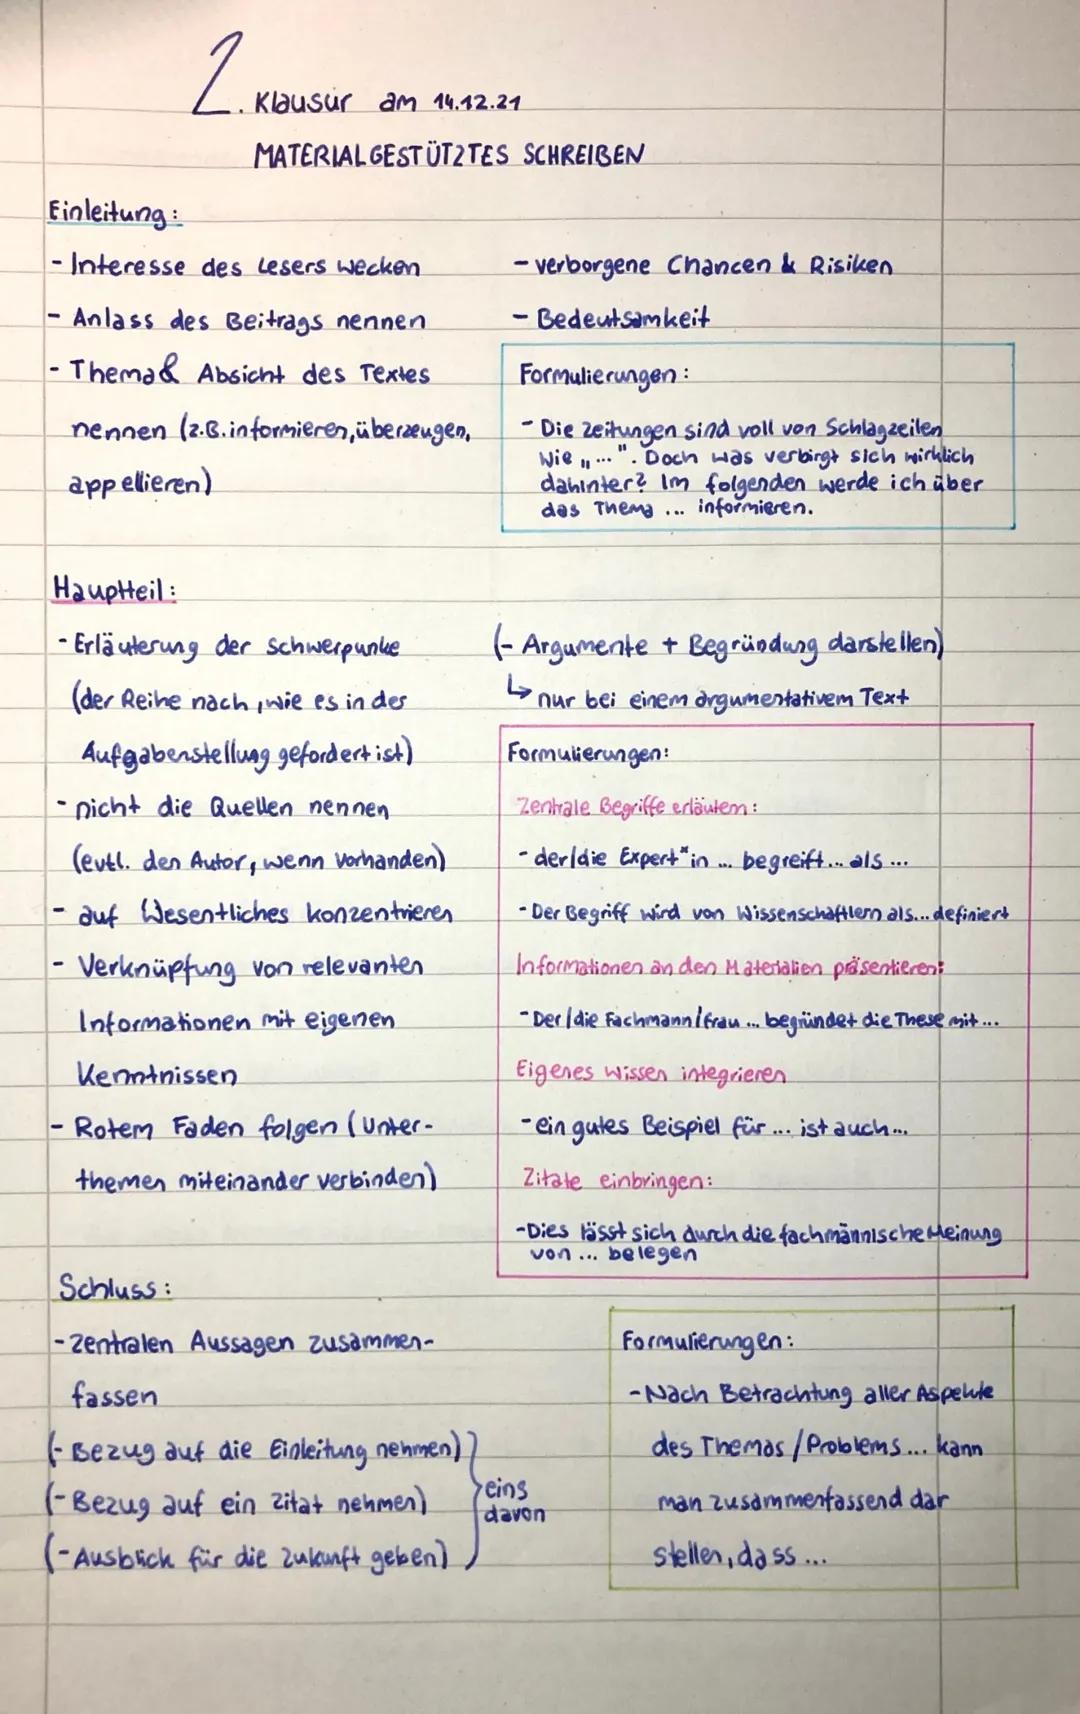 2. Klausur am 14.12.21
MATERIALGESTÜTZTES SCHREIBEN
Einleitung:
- Interesse des Lesers wecken
- Anlass des Beitrags nennen
- Thema & Absicht des Textes
nennen (z.B. informieren, überzeugen,
appellieren)
- verborgene Chancen & Risiken
- Bedeutsamkeit
Formulierungen:
- Die Zeitungen sind voll von Schlagzeilen
Wie „...". Doch was verbirgt sich wirklich
dahinter? Im folgenden werde ich über
das Thema ... informieren.
Hauptteil:
- Erläuterung der Schwerpunke
(der Reihe nach, wie es in der
Aufgabenstellung gefordert ist)
- nicht die Quellen nennen
(evtl. den Autor, wenn vorhanden)
- auf Wesentliches konzentrieren
- Verknüpfung von relevanten
Informationen mit eigenen
Kenntnissen
- Rotem Faden folgen (Unter-
themen miteinander verbinden)
(- Argumente + Begründung darstellen)
↳ nur bei einem argumentativem Text
Formulierungen:
Zentrale Begriffe erläutern:
- der/die Expert*in ... begreift ... als ...
- Der Begriff wird von Wissenschaftlern als... definiert
Informationen an den Materialien präsentieren:
- Der/die Fachmann/frau ... begründet die These mit ...
Eigenes Wissen integrieren
- ein gutes Beispiel für ... ist auch ...
Zitate einbringen:
- Dies lässt sich durch die fachmännische Meinung
von ... belegen
Schluss:
- zentralen Aussagen zusammen-
fassen
(- Bezug auf die Einleitung nehmen)
(- Bezug auf ein Zitat nehmen)
(- Ausblick für die Zukunft geben)
eins
davon
Formulierungen:
- Nach Betrachtung aller Aspekte
des Themas / Problems ... kann
man zusammenfassend dar
stellen, dass ...